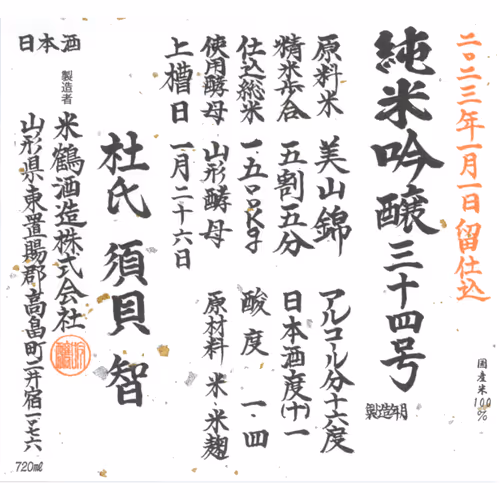 二〇二三年一月一日留仕込
国産米100%
純米吟醸三十四号
製造年月
原料米 美山錦 アルコール分十六度
精米歩合 五割五分 日本酒度(十)一
仕込総米 一五〇〇Kg 酸度 一・四
使用酵母 山形酵母 原材料 米 米麹
上槽日 一月二十六日
杜氏 須貝 智
日本酒
製造者 米鶴酒造株式会社
山形県東置賜郡高畠町二井宿一一七六
720ml